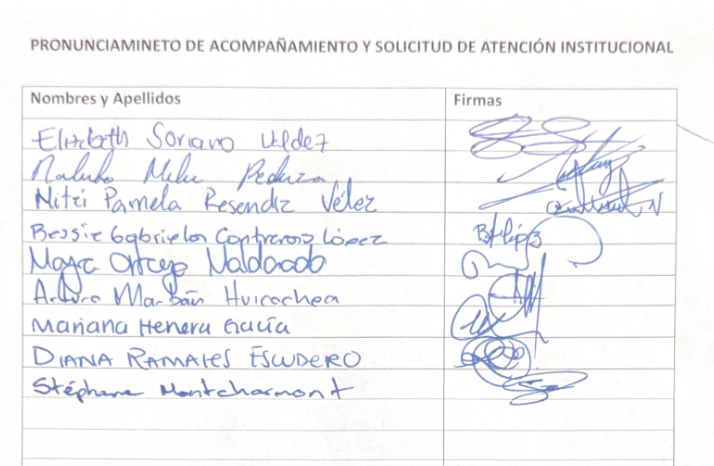 PRONUNCIAMINETO DE ACOMPAÑAMIENTO Y SOLICITUD DE ATENCIÓN INSTITUCIONAL
Nombres y Apellidos Firmas
Elizabeth Soriano
Nitzi Pamela Resendiz Vélez
Bessie Gabriela Contreras López
Maya Ortega Maldonado
Arturo Marbán Huicochea
Mariana Herrera García
DIANA RAMALES ESCUDERO
Stéphane Montcharmont